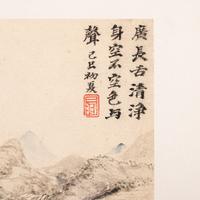 廣長舌清淨
身空不空色与
聲己巳初夏